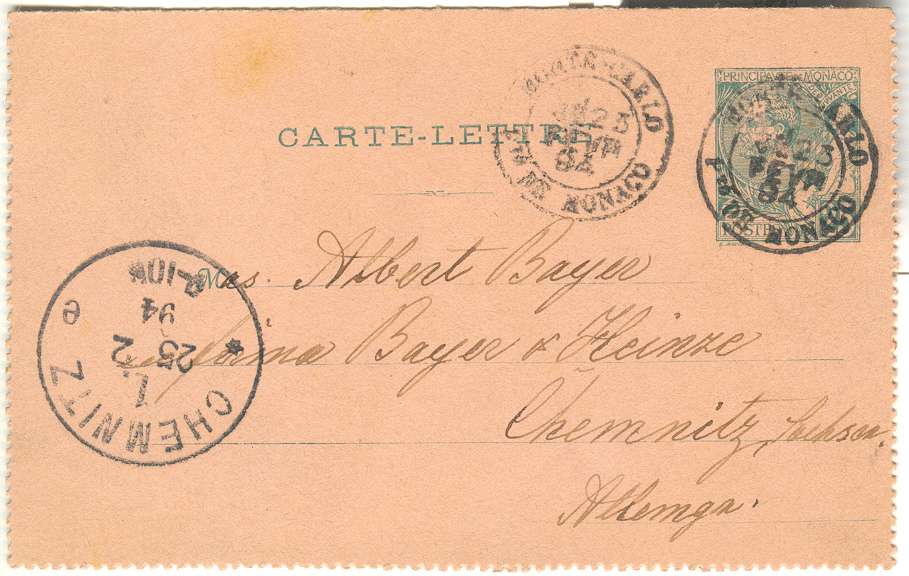 PRINCIPAUTÉ DE MONACO
CARTE-LETTRE
MONTE-CARLO
23
FEVR
94
PTÉ DE MONACO
MONTE-CARLO
23
FEVR
94
PTÉ DE MONACO
POSTES
Mrs. Albert Bayer
Firma Bayer & Heinze
Chemnitz, Sachsen,
Allemgn.
CHEMNITZ
1.
25 2
94